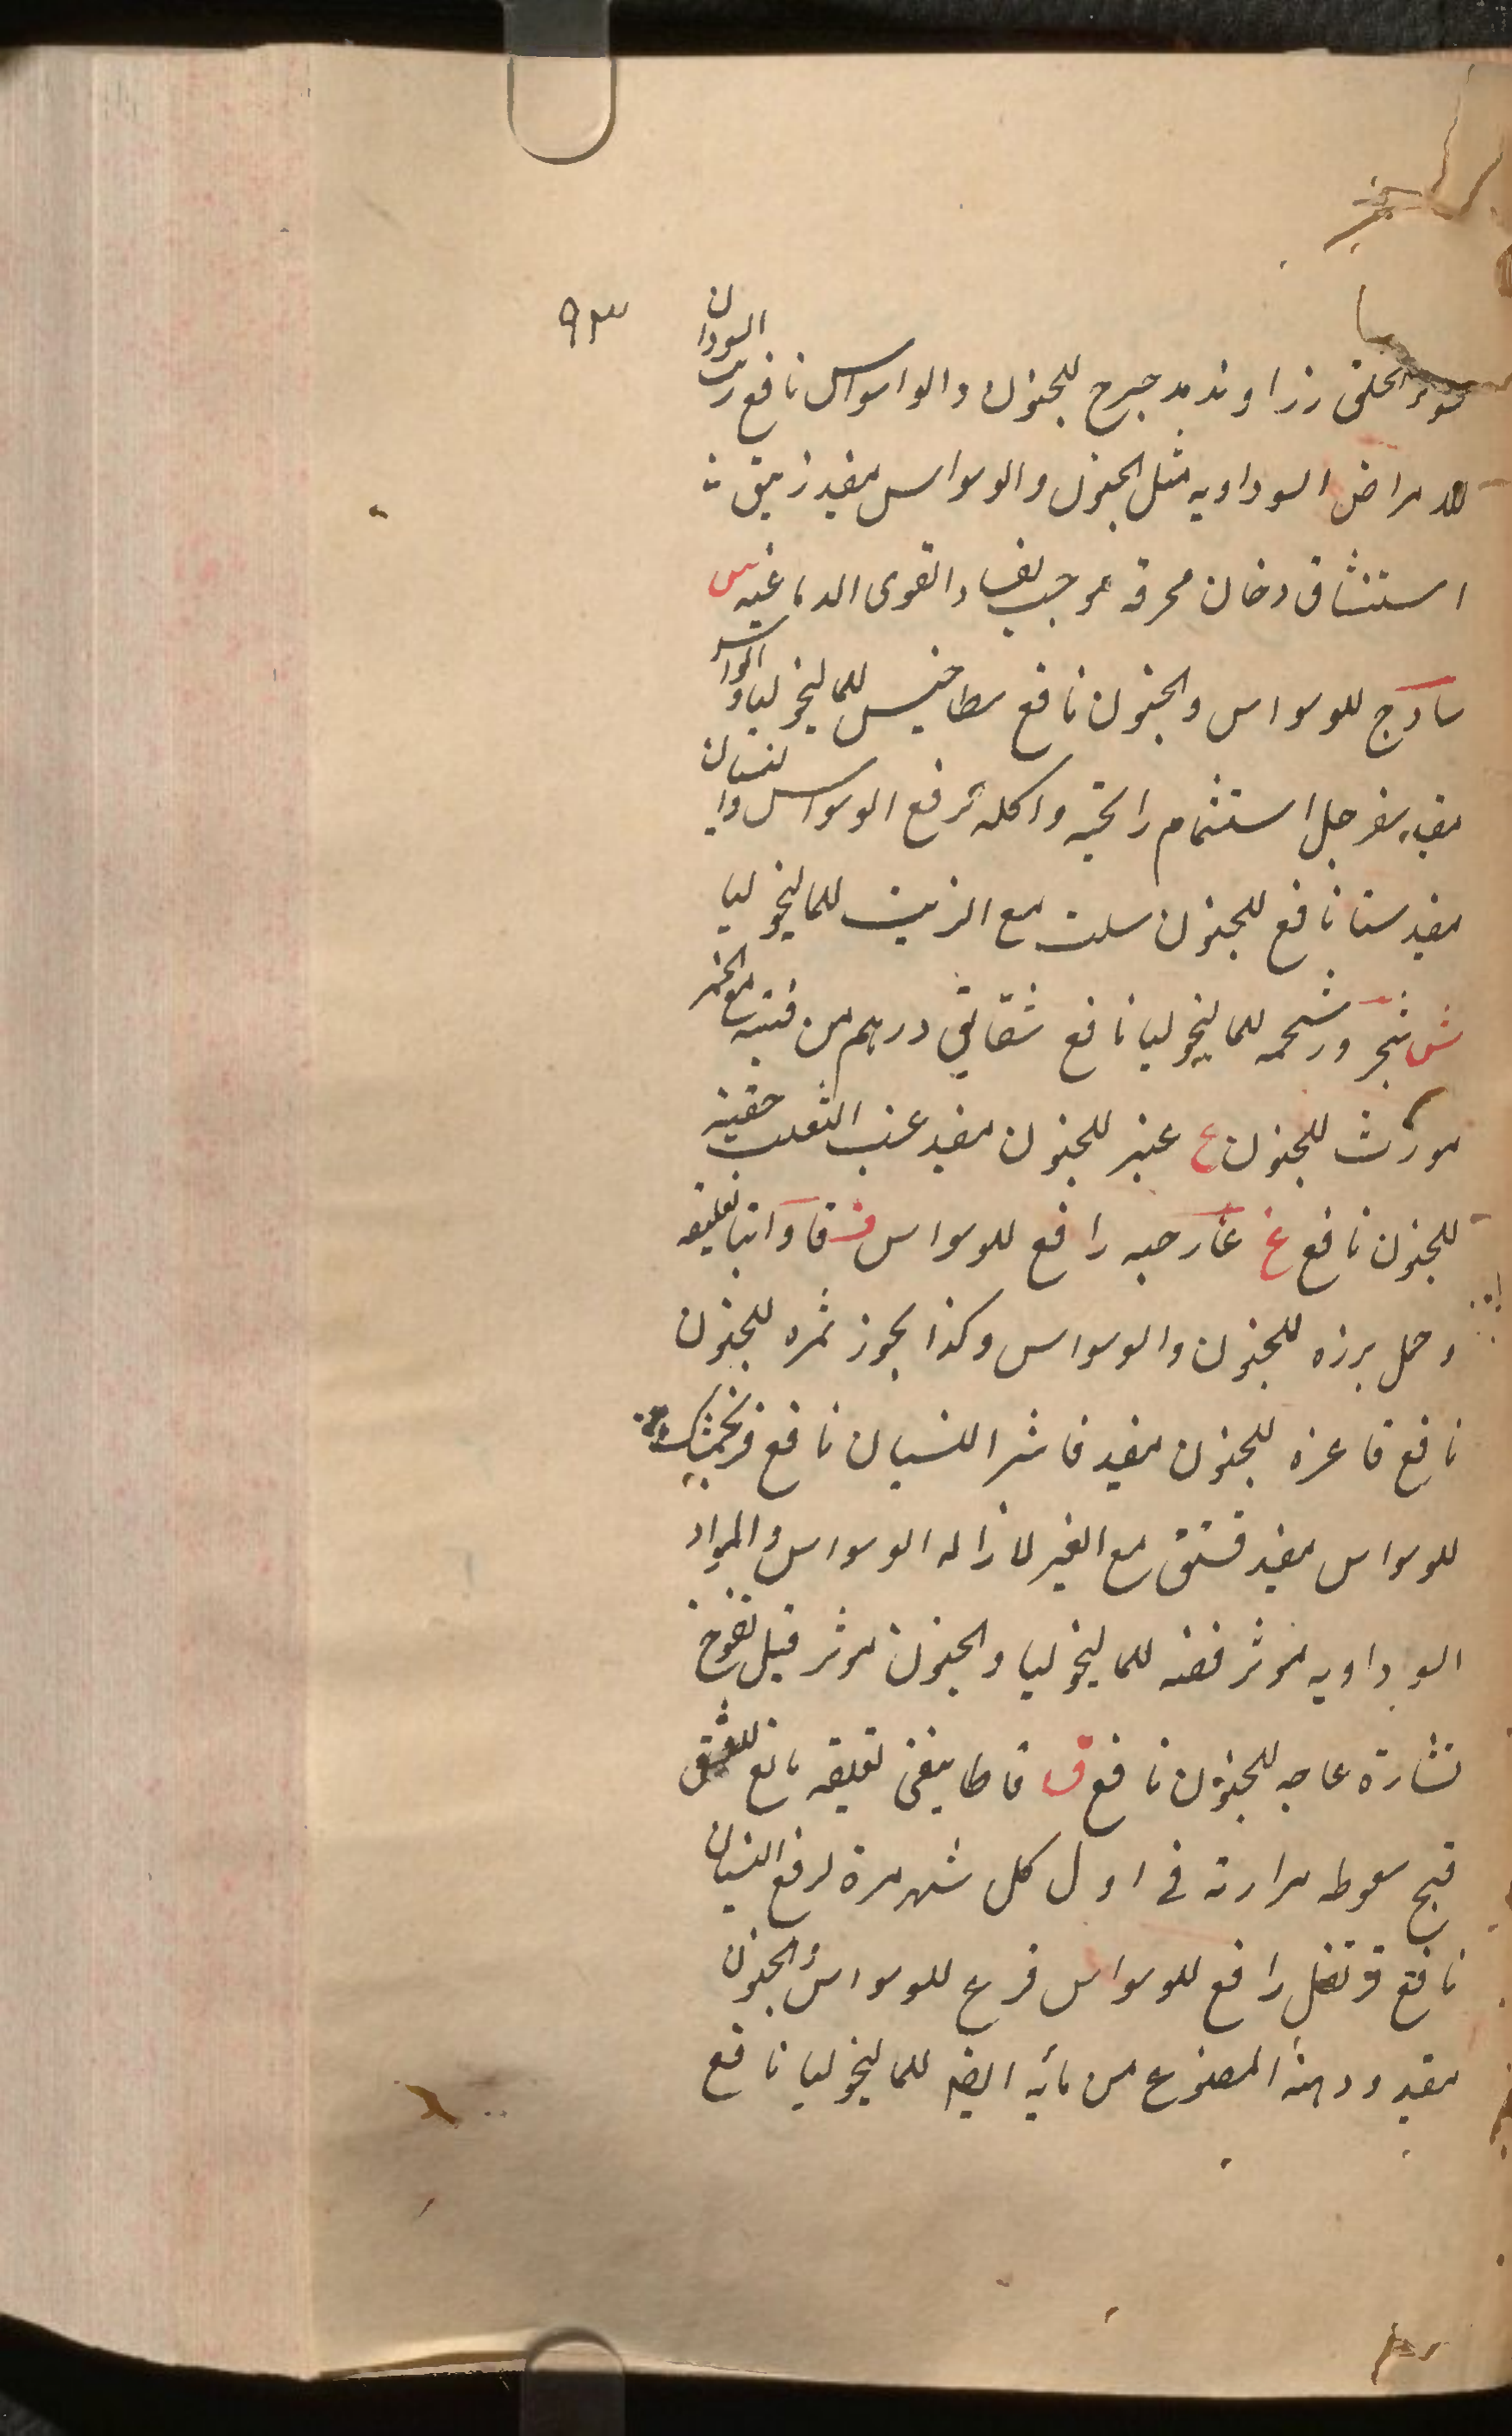 ٩٣
سوء الخلق زراوند مدحرج للجنون والواسواس نافع زيت السودان
للامراض السوداويه مثل الجنون والوسواس مفيد زيبق
استنشاق دخان محرقه موجب لفساد القوى الدماغيه س
ساذج للوسواس والجنون نافع سطاخيس للماليخوليا والوسواس
مفيد سفرجل استشمام رايحته واكله ترفع الوسواس والنسيان
مفيد سنا نافع للجنون سلت مع الزيت للماليخوليا
ش شجر ورشحمه للماليخوليا نافع شقاقل درهم من مع الخمر
مورث للجنون ع عنبر للجنون مفيد عنب الثعلب حقنته
للجنون نافع غ غار حبه رافع للوسواس ف فاوانيا تعليقه
وحمل برزه للجنون والوسواس وكذا بخور ثمره للجنون
نافع فاغره للجنون مفيد فاشرا للنسيان نافع فرنجمشك
للوسواس مفيد فستق مع الغير لازاله الوسواس والمواد
السوداويه موثر فضه للماليخوليا والجنون موثر فيل نفوخ
نشارة عاجه للجنون نافع ق تعليقه مانع للعشق
قبج سعوط مرارته في اول كل شهر مرة لرفع النسيان
نافع قرنفل رافع للوسواس قرع للوسواس والجنون
مفيد ودهنه المصنوع من مائه ايضا للماليخوليا نافع